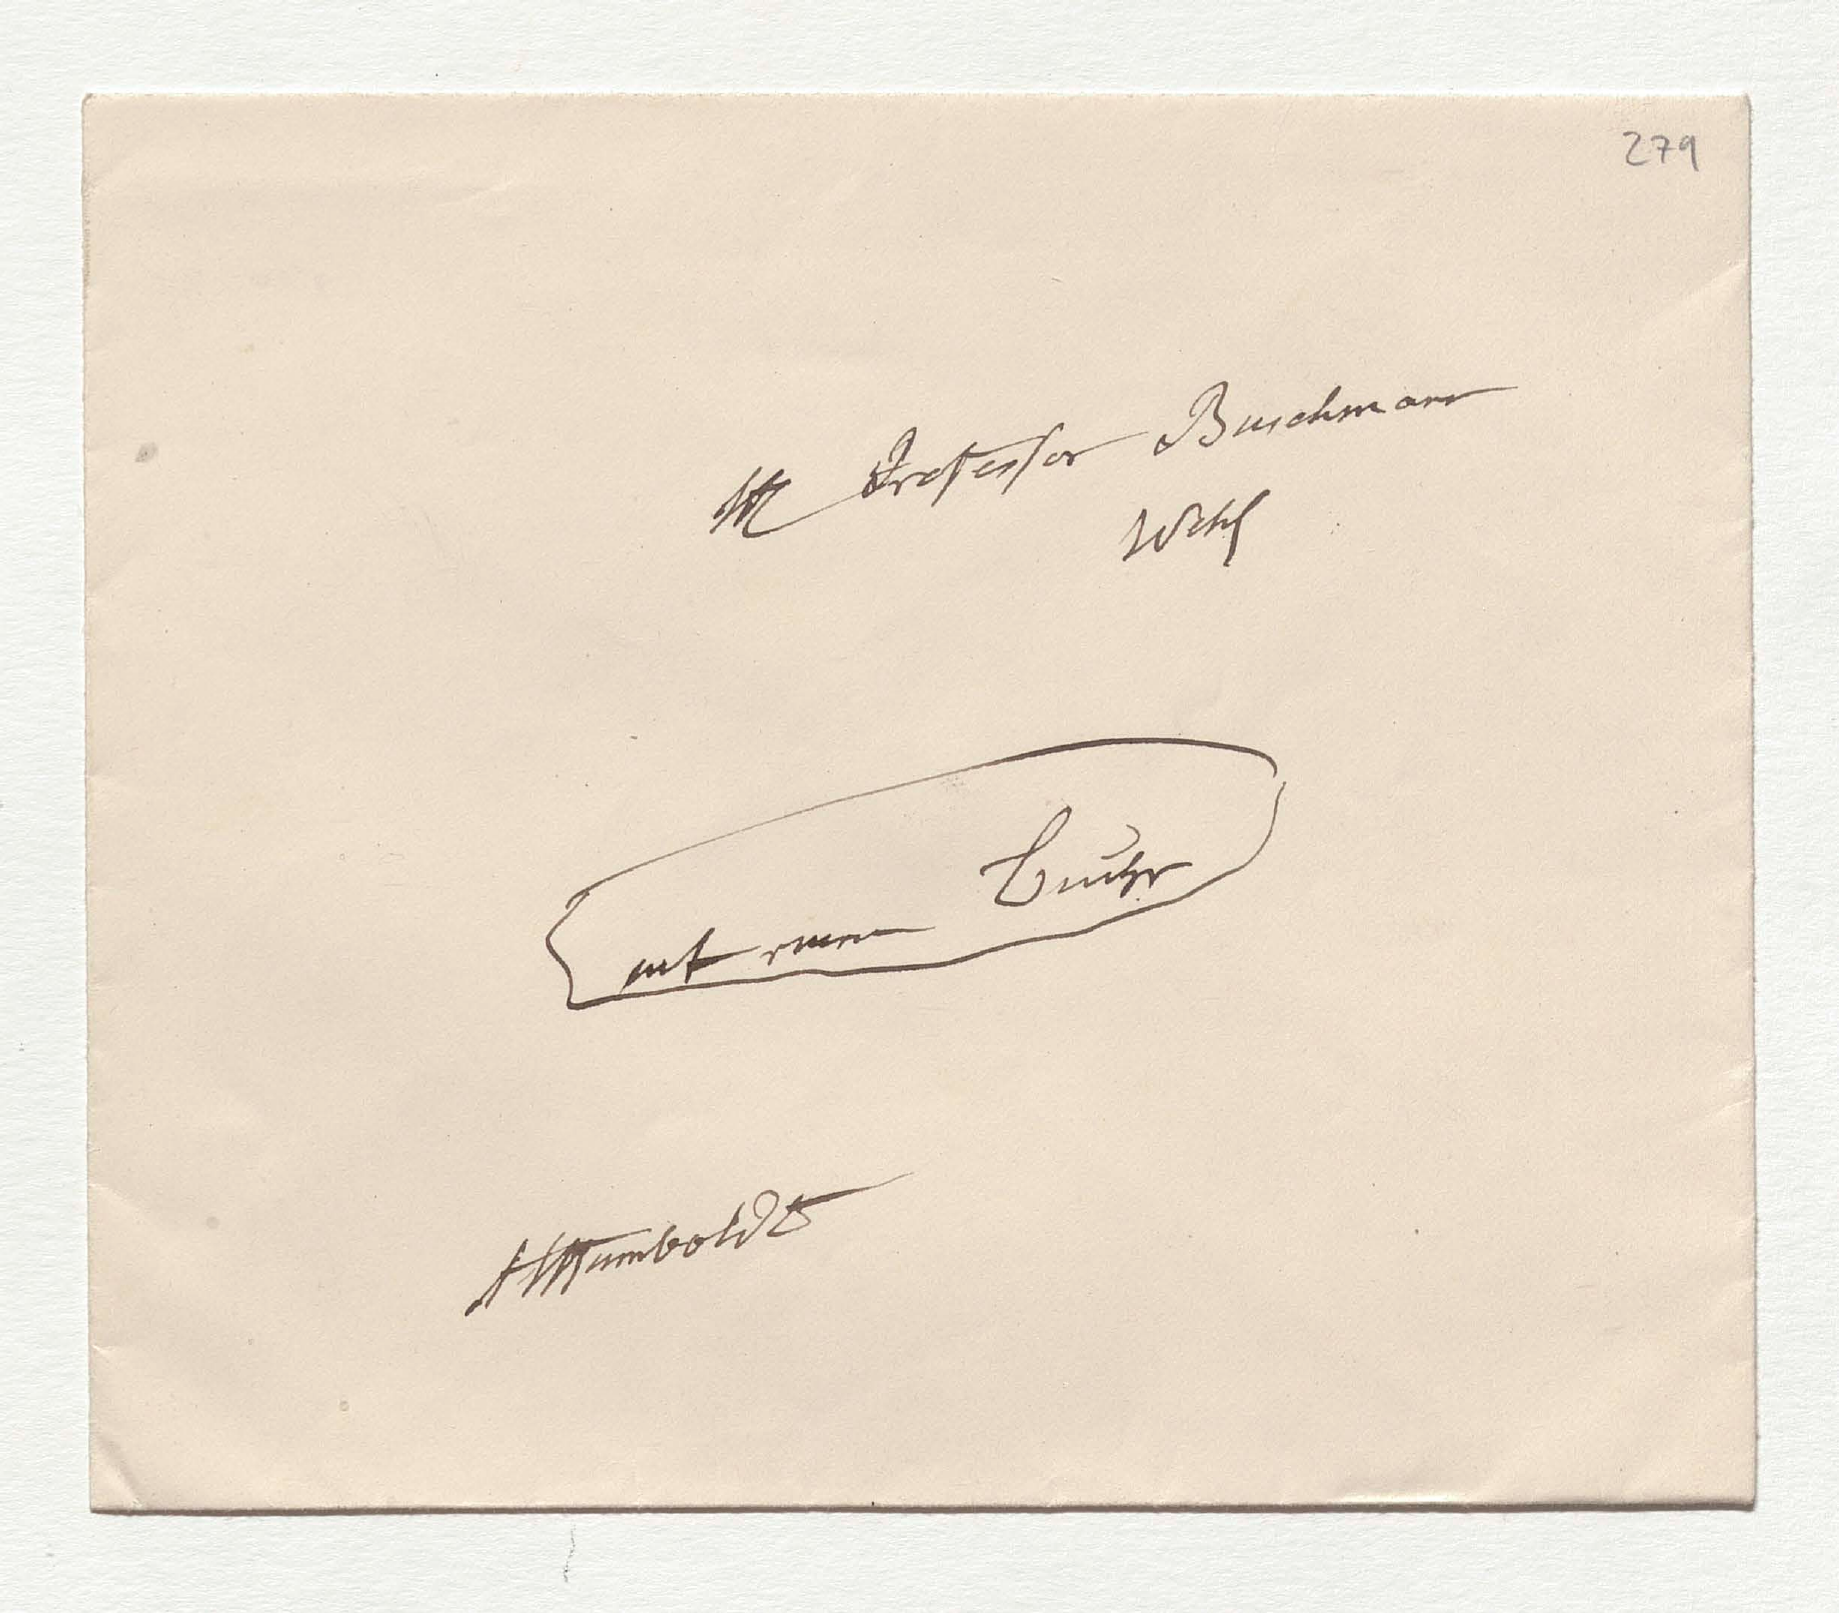 279
H Professor Buschmann
Wohlg
mit einem Buche
AHumboldt